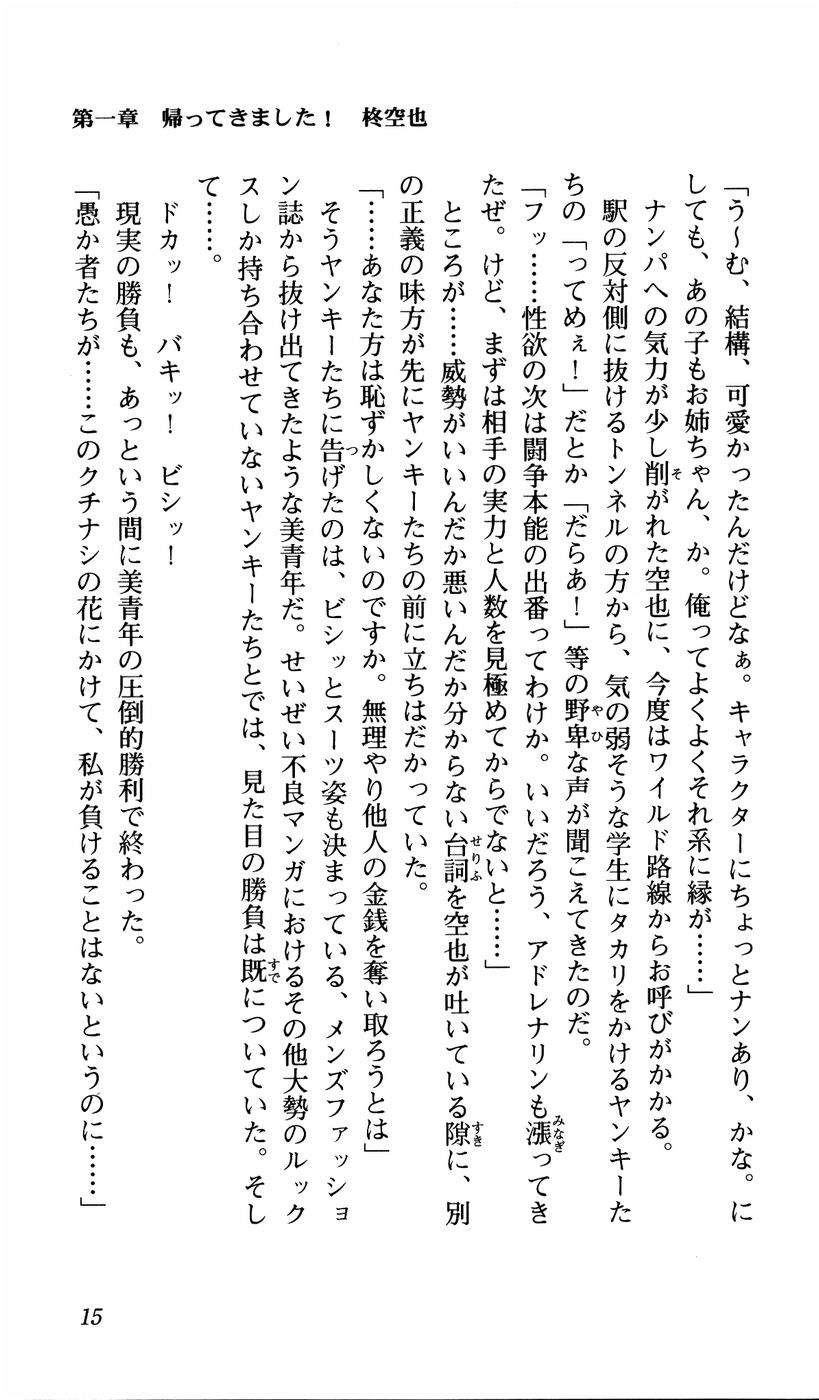 第一章　帰ってきました！　柊空也
「う～む、結構、可愛かったんだけどなぁ。キャラクターにちょっとナンあり、かな。に
しても、あの子もお姉ちゃん、か。俺ってよくよくそれ系に縁が……」
　ナンパへの気力が少し削がれた空也に、今度はワイルド路線からお呼びがかかる。
　駅の反対側に抜けるトンネルの方から、気の弱そうな学生にタカリをかけるヤンキーた
ちの「ってめぇ！」だとか「だらあ！」等の野卑な声が聞こえてきたのだ。
「フッ……性欲の次は闘争本能の出番ってわけか。いいだろう、アドレナリンも漲ってき
たぜ。けど、まずは相手の実力と人数を見極めてからでないと……」
　ところが……威勢がいいんだか悪いんだか分からない台詞を空也が吐いている隙に、別
の正義の味方が先にヤンキーたちの前に立ちはだかっていた。
「……あなた方は恥ずかしくないのですか。無理やり他人の金銭を奪い取ろうとは」
　そうヤンキーたちに告げたのは、ビシッとスーツ姿も決まっている、メンズファッショ
ン誌から抜け出てきたような美青年だ。せいぜい不良マンガにおけるその他大勢のルック
スしか持ち合わせていないヤンキーたちとでは、見た目の勝負は既についていた。そし
て……。
　ドカッ！　バキッ！　ビシッ！
　現実の勝負も、あっという間に美青年の圧倒的勝利で終わった。
「愚か者たちが……このクチナシの花にかけて、私が負けることはないというのに……」
15